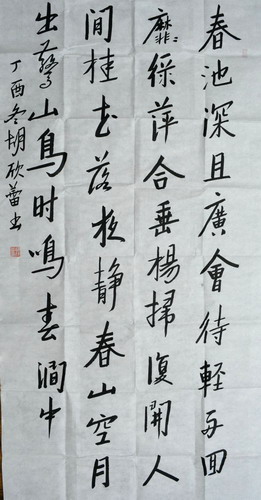 春池深且廣會待輕舟回
靡靡綠萍合垂楊掃復開人
閒桂花落夜靜春山空月
出驚山鳥時鳴春澗中
丁酉冬胡砍蕾书